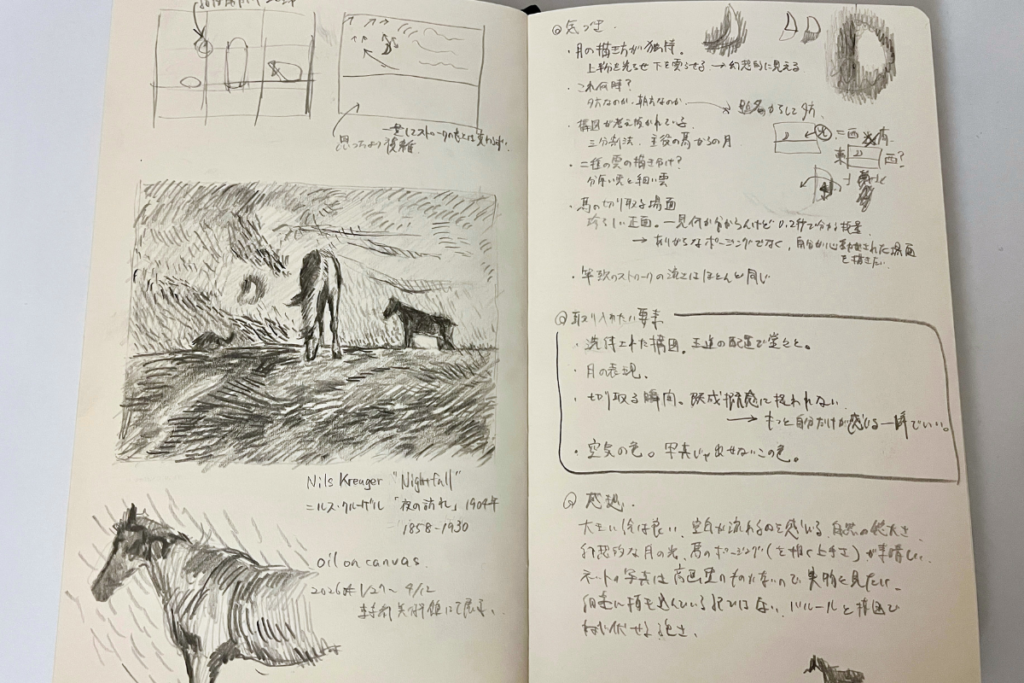 一貫してストロークの向きは変わらない。
思ったより複雑
Nils Kreuger "Nightfall"
ニルス・クルーゲル「夜の訪れ」1904年
1858-1930
oil on canvas.
2026年 1/27～4/12
東京都美術館にて展示。
◎気づき.
・月の描き方が独特。
上部を光らせ下を曇らせる → 幻想的に見える
・これ何時?
夕方なのか、朝方なのか → 題名からして夕方
・構図が考え抜かれている。
三分割法. 主役の馬からの月
西 南
東 西?
・二種の雲の描き分け?
分厚い雲と細い雲
・馬の切り取る場面
珍しい正面。一見何か分からんけど0.2秒で分かる
→ ありがちなポージングでなく、自分が心動かされた場面
を描きたい
・筆致のストロークの流れはほとんど同じ
◎取り入れたい要素
・洗練された構図。王道の配置で堂々と。
・月の表現。
・切り取る瞬間。既成構図に捉われない
→ もっと自分だけが感じる一瞬でいい。
・空気の色。写真じゃ出せないこの色。
◎感想
大きい絵は良い. 空気が流れるのを感じる. 自然の絶大さ
幻想的な月の光. 馬のポージング(を描く上手さ)が素晴しい.
ネットの写真は高画質のものがないので実物を見たい.
細密に描き込んでいる訳ではない. バルールと構図で
ねじ伏せる強さ.